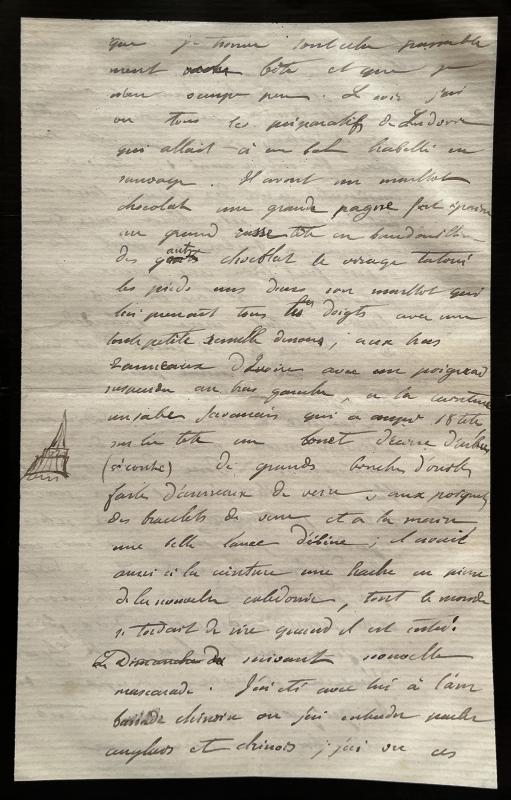 que je trouve tout cela passable
ment bête et que je
m'en occupe peu. Le soir j'ai
vu tous les préparatifs de Ludovic
qui allait à un bal habillé en
sauvage. Il avait un maillot
chocolat une grande pagne fort
un grand casse tête en bandouillère
des gants chocolat le visage tatoué
les pieds nus dans son maillot qui
lui prenait tous les doigts avec une
toute petite semelle dessous, aux bras
anneaux d'ivoire avec un poignard
suspendu au bras gauche, a la ceinture
un sabre Javanais qui a coupé 18 tête
sur la tête un bonet d'écorce d'arbres
(récolte) de grands boucles d'oreilles
faites d'anneaux de verre, aux poignets
des bracelets de verre et a la main
une belle lance d'ébène; il avait
aussi à la ceinture une hache en pierre
de la nouvelle calédonie, tout le monde
se tordait de rire quand il est entré.
Le Dimanche suivant nouvelle
mascarade. J'ai été avec lui à l'am
bassade chinoise ou j'ai entendu parler
anglais et chinois; j'ai vu ces